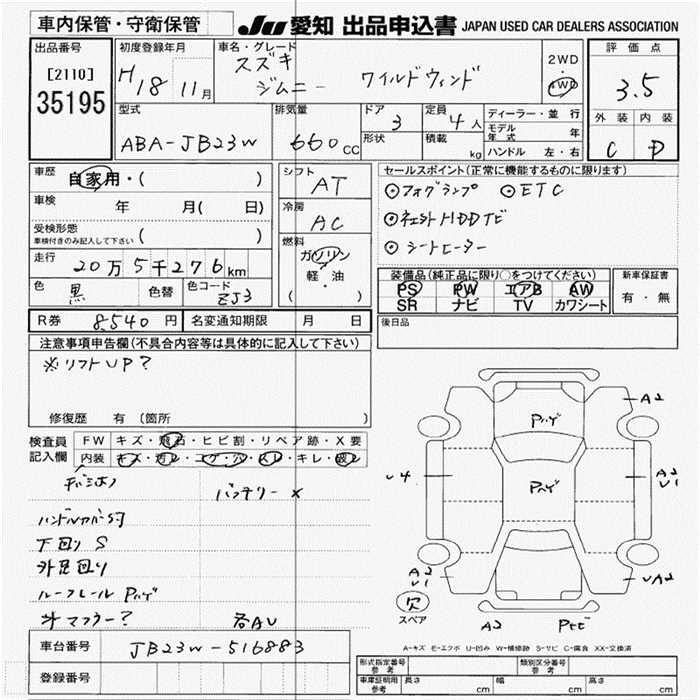 車内保管・守衛保管
JU 愛知 出品申込書 JAPAN USED CAR DEALERS ASSOCIATION
出品番号
[2110]
35195
初度登録年月
H18 11月
車名・グレード
スズキ
ジムニー ワイルドウィンド
2WD
・
4WD
評価点
3.5
外装 内装
C D
型式
ABA-JB23W
排気量
660 CC
ドア
3
形状
定員
4人
積載
kg
ディーラー・並行
モデル年式 年
ハンドル 左・右
車歴
自家用・( )
車検 年 月( 日)
受検形態
車検付きのみ記入して下さい ( )
走行
20万5千276km
色
黒
色替
色コード
ZJ3
シフト
AT
冷房
AC
燃料
ガソリン
軽・油
( )
セールスポイント(正常に機能するものに限ります)
◎フォグランプ ◎ETC
◎社外HDDナビ
◎シートヒーター
装備品(純正品に限り○をつけてください)
PS PW エアB AW
SR ナビ TV カワシート
新車保証書
有・無
R券 8,540円
名変通知期限 月 日
後日品
注意事項申告欄(不具合内容等は具体的に記入して下さい)
※リフトUP?
修復歴 有(箇所 )
検査員記入欄
FW キズ・飛石・ヒビ割・リペア跡・X要
内装 キズ・汚レ・コゲ・穴・スレ・キレ・破レ
バッテリーX
ハンドルカバーSf
下回りS
外足回り
ルーフレールPハゲ
外マフラー?
各AU
車台番号 JB23W-516883
登録番号
Pハゲ
Pハゲ
A2
U4
A2
U1
A2
U1
UA2
欠
スペア
A2
Pヒビ
A-キズ E-エクボ U-凹み W-補修跡 S-サビ C-腐食 XX-交換済
形式指定番号 参考
類別区分番号 参考
車庫証明用 参考 長さ cm 幅 cm 高さ cm